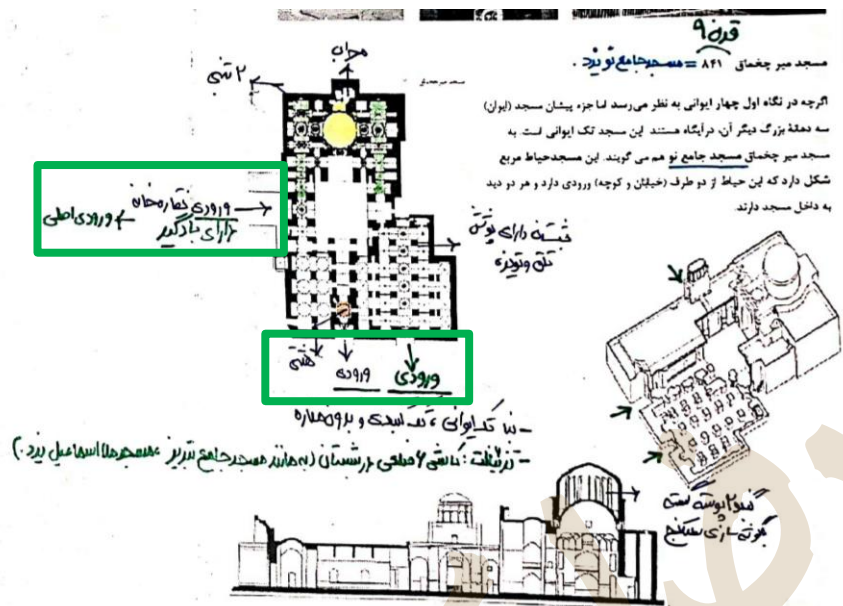 قرن ۹
مسجد میر چخماق ۸۴۱ = مسجد جامع نو یزد .
اگرچه در نگاه اول چهار ایوانی به نظر می‌رسد اما جزء پیشان مسجد (ایوان)
سه دهانهٔ بزرگ دیگر آن، درآیگاه هستند. این مسجد تک ایوانی است. به
مسجد میر چخماق مسجد جامع نو هم می گویند. این مسجدحیاط مربع
شکل دارد که این حیاط از دو طرف (خیابان و کوچه) ورودی دارد و هر دو دید
به داخل مسجد دارند.
محراب
ورودی نقارخانه
دارای بادگیر
ورودی اصلی
شبستان دارای پوشش
هشتی
ورودی
ورودی
- بنا تک ایوانی ، تک گنبدی و بدون مناره
- تزئینات : کاشی ۶ ضلعی در شبستان ( به مانند مسجد جامع تبریز ، مسجد ملا اسماعیل یزد . )
گنبد ۲ پوسته گسسته